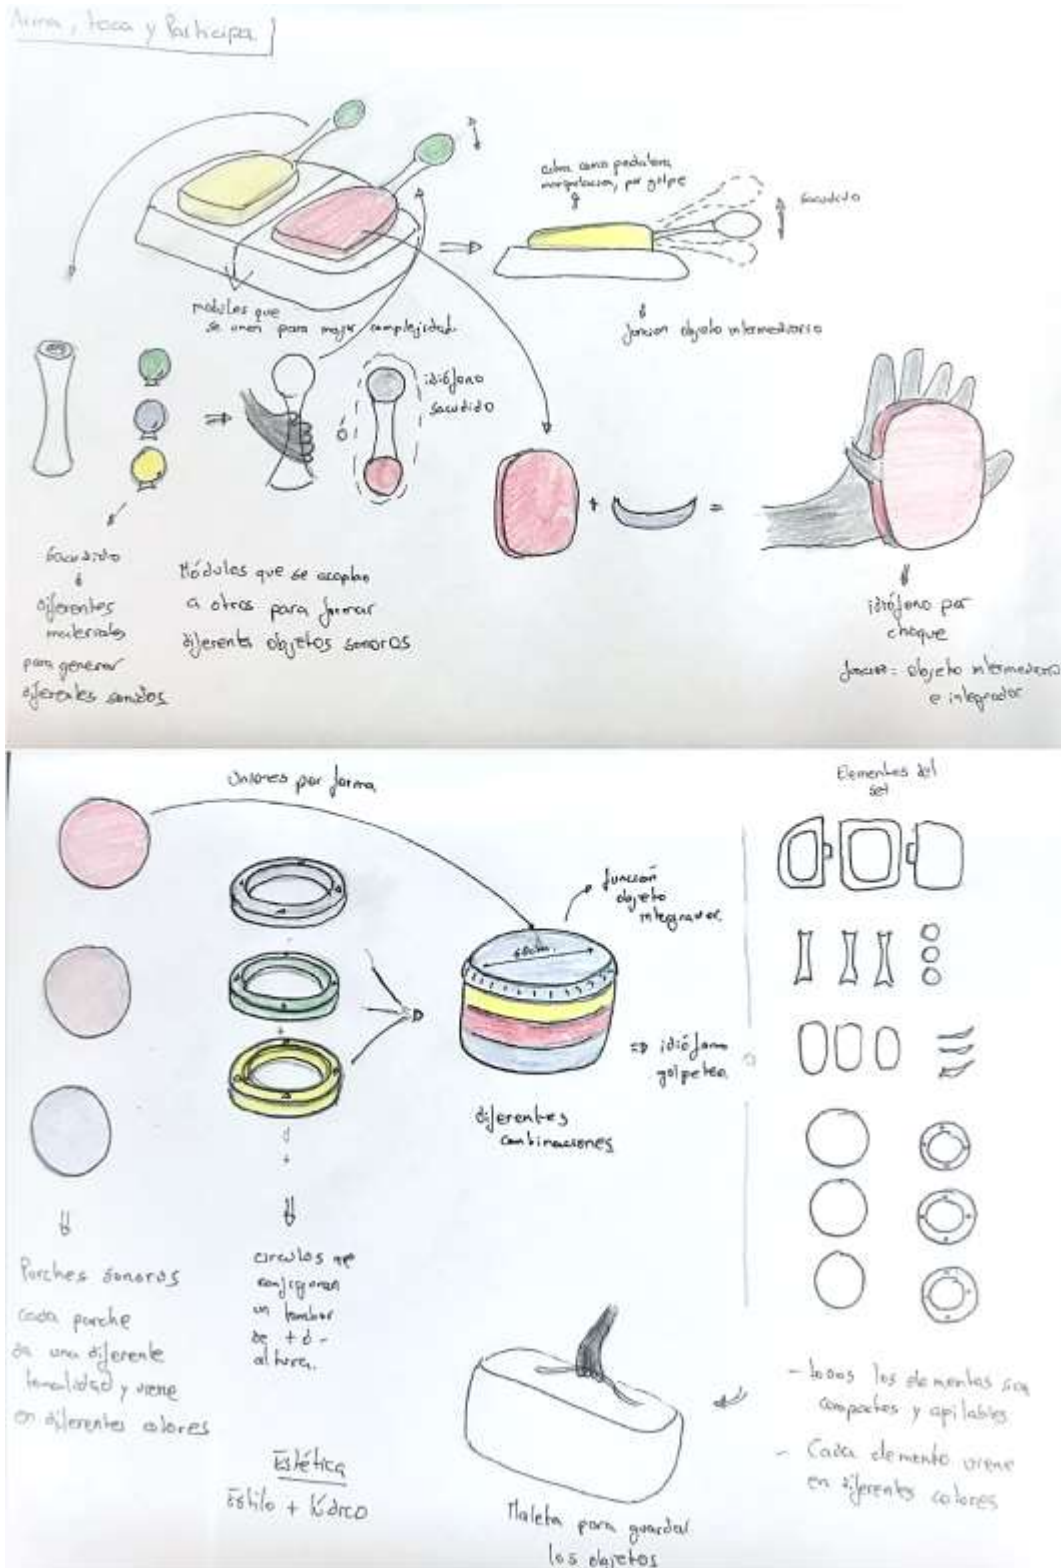 Arma, toca y Participa.
actua como pedalera
manipulacion, por golpe
sacudido
modulos que
se unen para mayor complejidad.
funcion objeto intermediario
idiófono
sacudido
ó
+
=
Sacudido
diferentes
materiales
para generar
diferentes sonidos
Módulos que se acoplan
a otros para formar
diferentes objetos sonoros
idiófono por
choque
funcion = objeto intermediario
e integrador
Uniones por forma
Elementos del
set
función
objeto
integrador.
idiófono
golpeteo
diferentes
combinaciones
Parches sonoros
cada parche
da una diferente
tonalidad y viene
en diferentes colores
circulos que
configuran
un tambor
de + ó -
altura.
Estética
Estilo + lúdico
Maleta para guardar
los objetos
- todos los elementos son
compactos y apilables
- Cada elemento viene
en diferentes colores